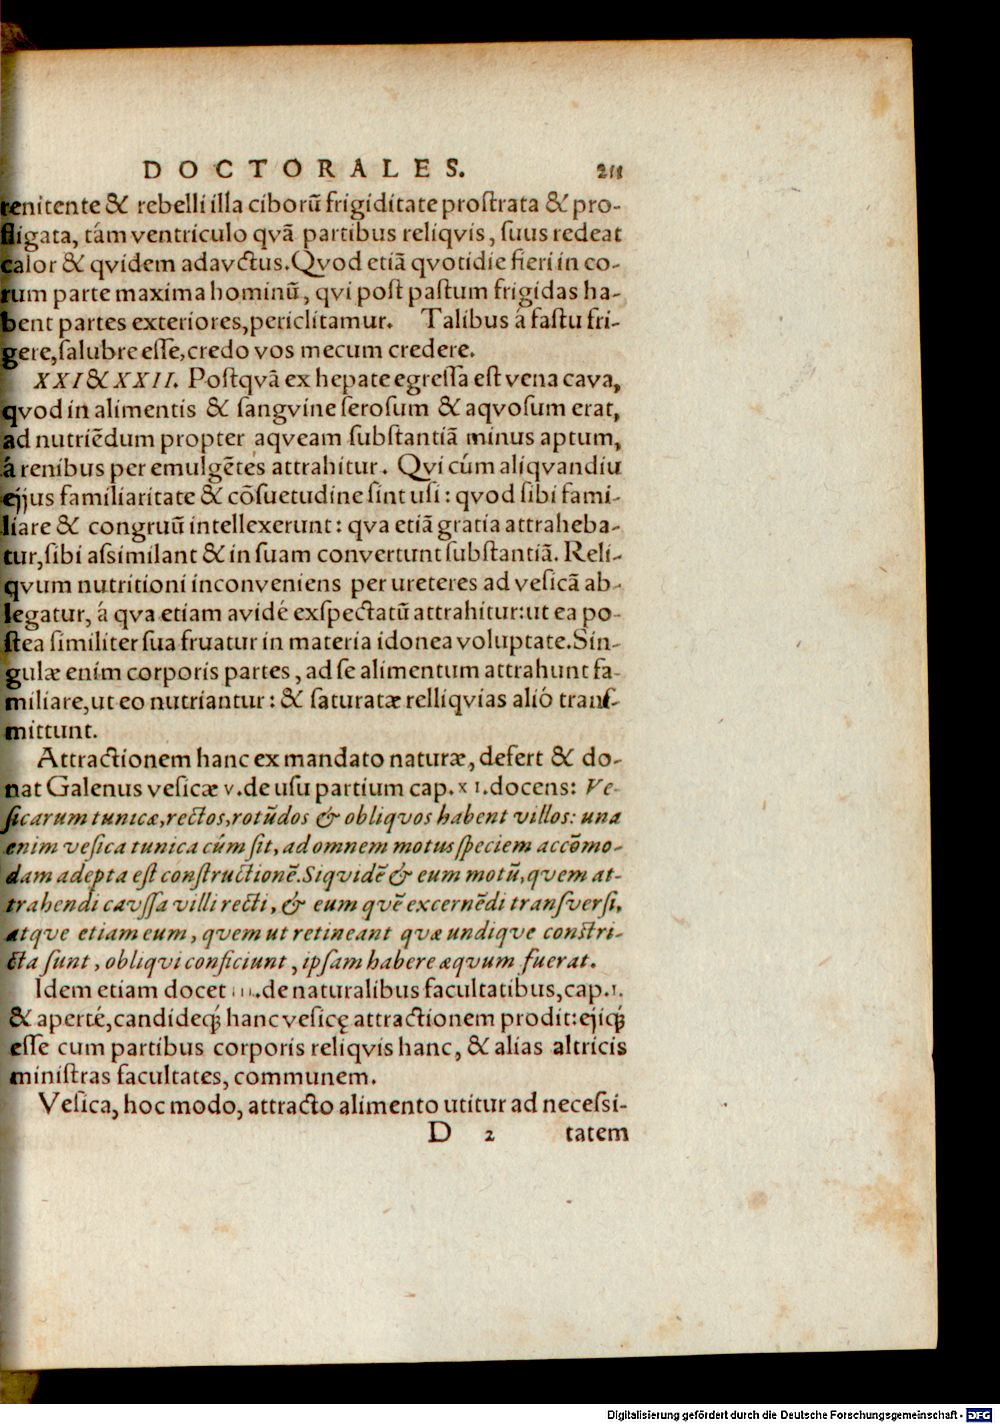 DOCTORALES.
renitente & rebelli illa ciborū frigiditate prostrata & pro-
fligata, tám ventriculo qvā partibus reliqvis, suus redeat
calor & qvidem adavctus. Qvod etiā qvotidie fieri in co-
rum parte maxima hominū, qvi post pastum frigidas ha-
bent partes exteriores, periclitamur. Talibus á fastu fri-
gere, salubre esse, credo vos mecum credere.
XXI & XXII. Postqvā ex hepate egressa est vena cava,
qvod in alimentis & sangvine serosum & aqvosum erat,
ad nutriēdum propter aqveam substantiā minus aptum,
á renibus per emulgētes attrahitur. Qvi cúm aliqvandiu
ejus familiaritate & cōsuetudine sint usi: qvod sibi fami-
liare & congruū intellexerunt: qva etiā gratia attraheba-
tur, sibi assimilant & in suam convertunt substantiā. Reli-
qvum nutritioni inconveniens per ureteres ad vesicā ab-
legatur, á qva etiam avidé exspectatū attrahitur: ut ea po-
stea similiter sua fruatur in materia idonea voluptate. Sin-
gulæ enim corporis partes, ad se alimentum attrahunt fa-
miliare, ut eo nutriantur: & saturatæ relliqvias alió trans-
mittunt.
Attractionem hanc ex mandato naturæ, defert & do-
nat Galenus vesicæ v. de usu partium cap. XI. docens: Ve-
sicarum tunicæ, rectos, rotūdos & obliqvos habent villos: una
enim vesica tunica cúm sit, ad omnem motus speciem accōmo-
dam adepta est constructionē. Siqvidē & eum motū, qvem at-
trahendi cavssa villi recti, & eum qvē excernēdi transversi,
atqve etiam eum, qvem ut retineant qvæ undiqve constri-
cta sunt, obliqvi conficiunt, ipsam habere æqvum fuerat.
Idem etiam docet III. de naturalibus facultatibus, cap. I.
& aperté, candideq́; hanc vesicę attractionem prodit: ejiq́;
esse cum partibus corporis reliqvis hanc, & alias altricis
ministras facultates, communem.
Vesica, hoc modo, attracto alimento utitur ad necessi-
D 2 tatem
Digitalisierung gefördert durch die Deutsche Forschungsgemeinschaft - DFG